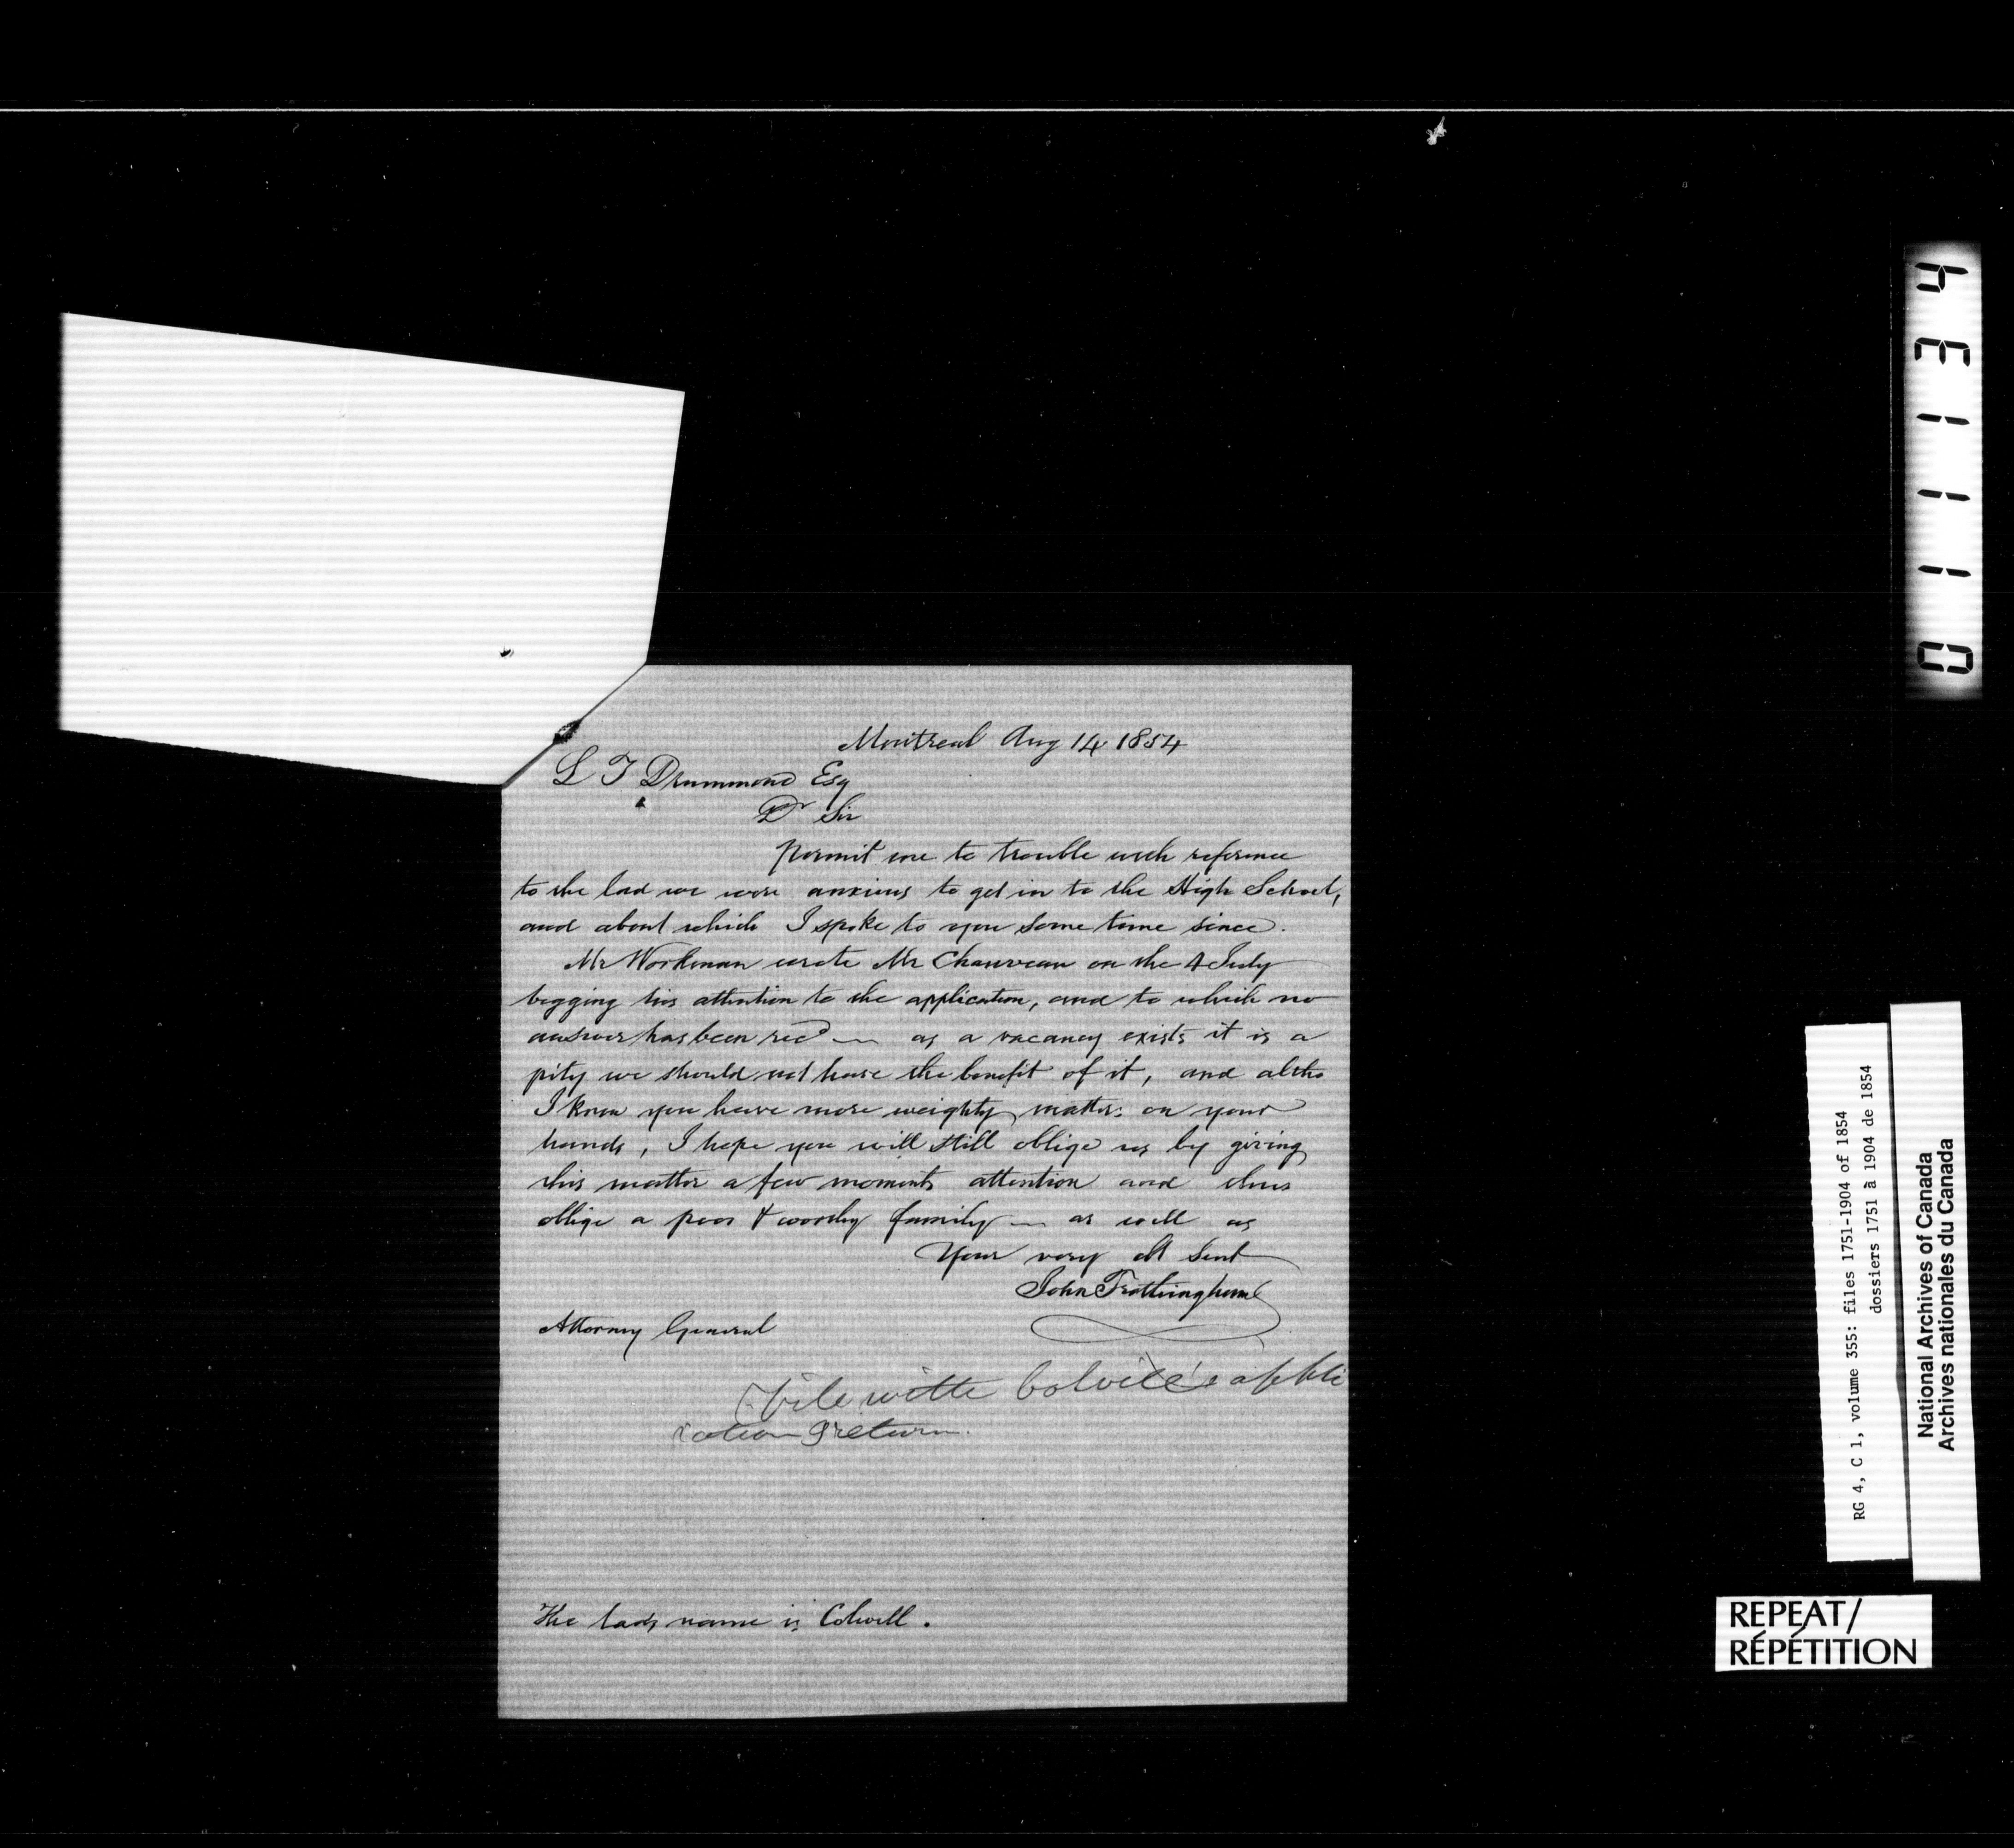 Montreal Aug 14 1854
L T Drummond Esq
Dr Sir
Permit me to trouble with reference
to the lad we were anxious to get in to the High School,
and about which I spoke to you some time since.
Mr Workman wrote Mr Chauveau on the 4 July
begging his attention to the application, and to which no
answer has been recd — as a vacancy exists it is a
pity we should not have the benefit of it, and altho
I know you have more weighty matters on your
hands, I hope you will still oblige us by giving
this matter a few moments attention and thus
oblige a poor & worthy family — as well as
Your very obt Servt
John Frothingham
Attorney General
File with Colville's appli
cation & return.
The lads name is Colwell.
011134
RG 4, C 1, volume 355: files 1751-1904 of 1854
dossiers 1751 à 1904 de 1854
National Archives of Canada
Archives nationales du Canada
REPEAT/
RÉPÉTITION